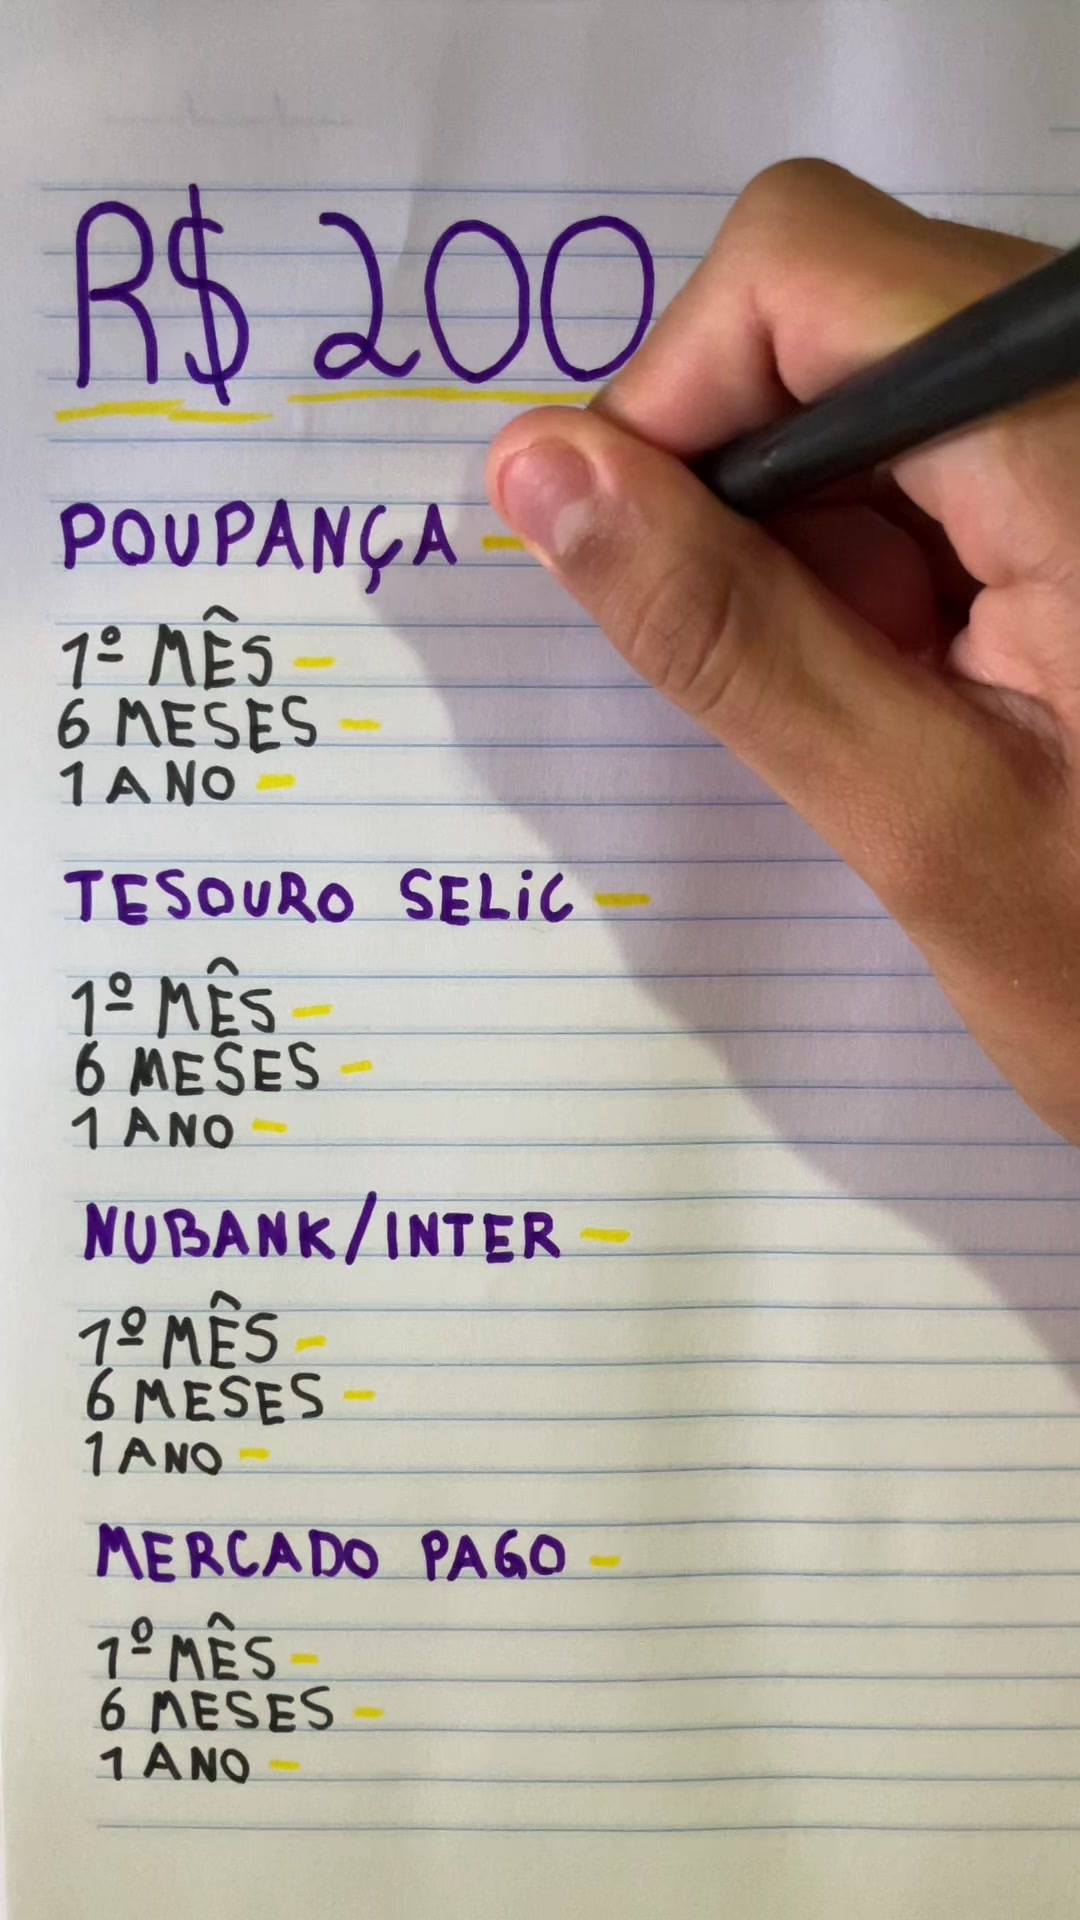 R$ 200
POUPANÇA -
1º MÊS -
6 MESES -
1 ANO -
TESOURO SELIC -
1º MÊS -
6 MESES -
1 ANO -
NUBANK/INTER -
1º MÊS -
6 MESES -
1 ANO -
MERCADO PAGO -
1º MÊS -
6 MESES -
1 ANO -